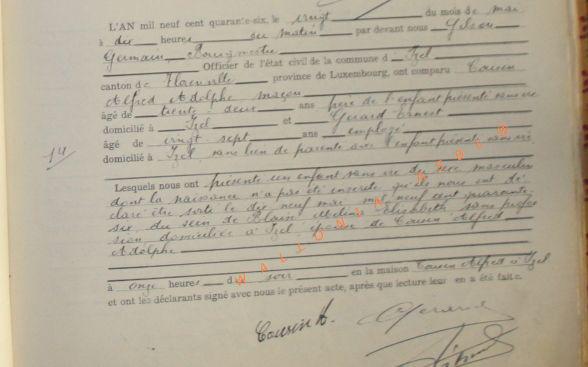 L'AN mil neuf cent quarante-six, le vingt du mois de mai
à dix heures du matin par devant nous Gilson
Germain, Bourgmestre
Officier de l'état civil de la commune d'Izel
canton de Florenville province de Luxembourg, ont comparu Cousin
Alfred Adolphe maçon
âgé de trente-deux ans père de l'enfant présenté sans vie
domicilié à Izel et Gérard Ernest
âgé de vingt-sept ans employé
domicilié à Izel, sans lien de parenté avec l'enfant présenté sans vie
14
Lesquels nous ont présenté un enfant sans vie du sexe masculin
dont la naissance n'a pas été inscrite qu'ils nous ont dé-
claré être sorti le dix neuf mai mil neuf cent quarante-
six, du sein de Elisabeth sans profes
sion domiciliée à Izel, épouse de Cousin Alfred
Adolphe
à onze heures du soir en la maison Cousin Alfred à Izel
et ont les déclarants signé avec nous le présent acte, après que lecture leur en a été faite.
Cousin A.